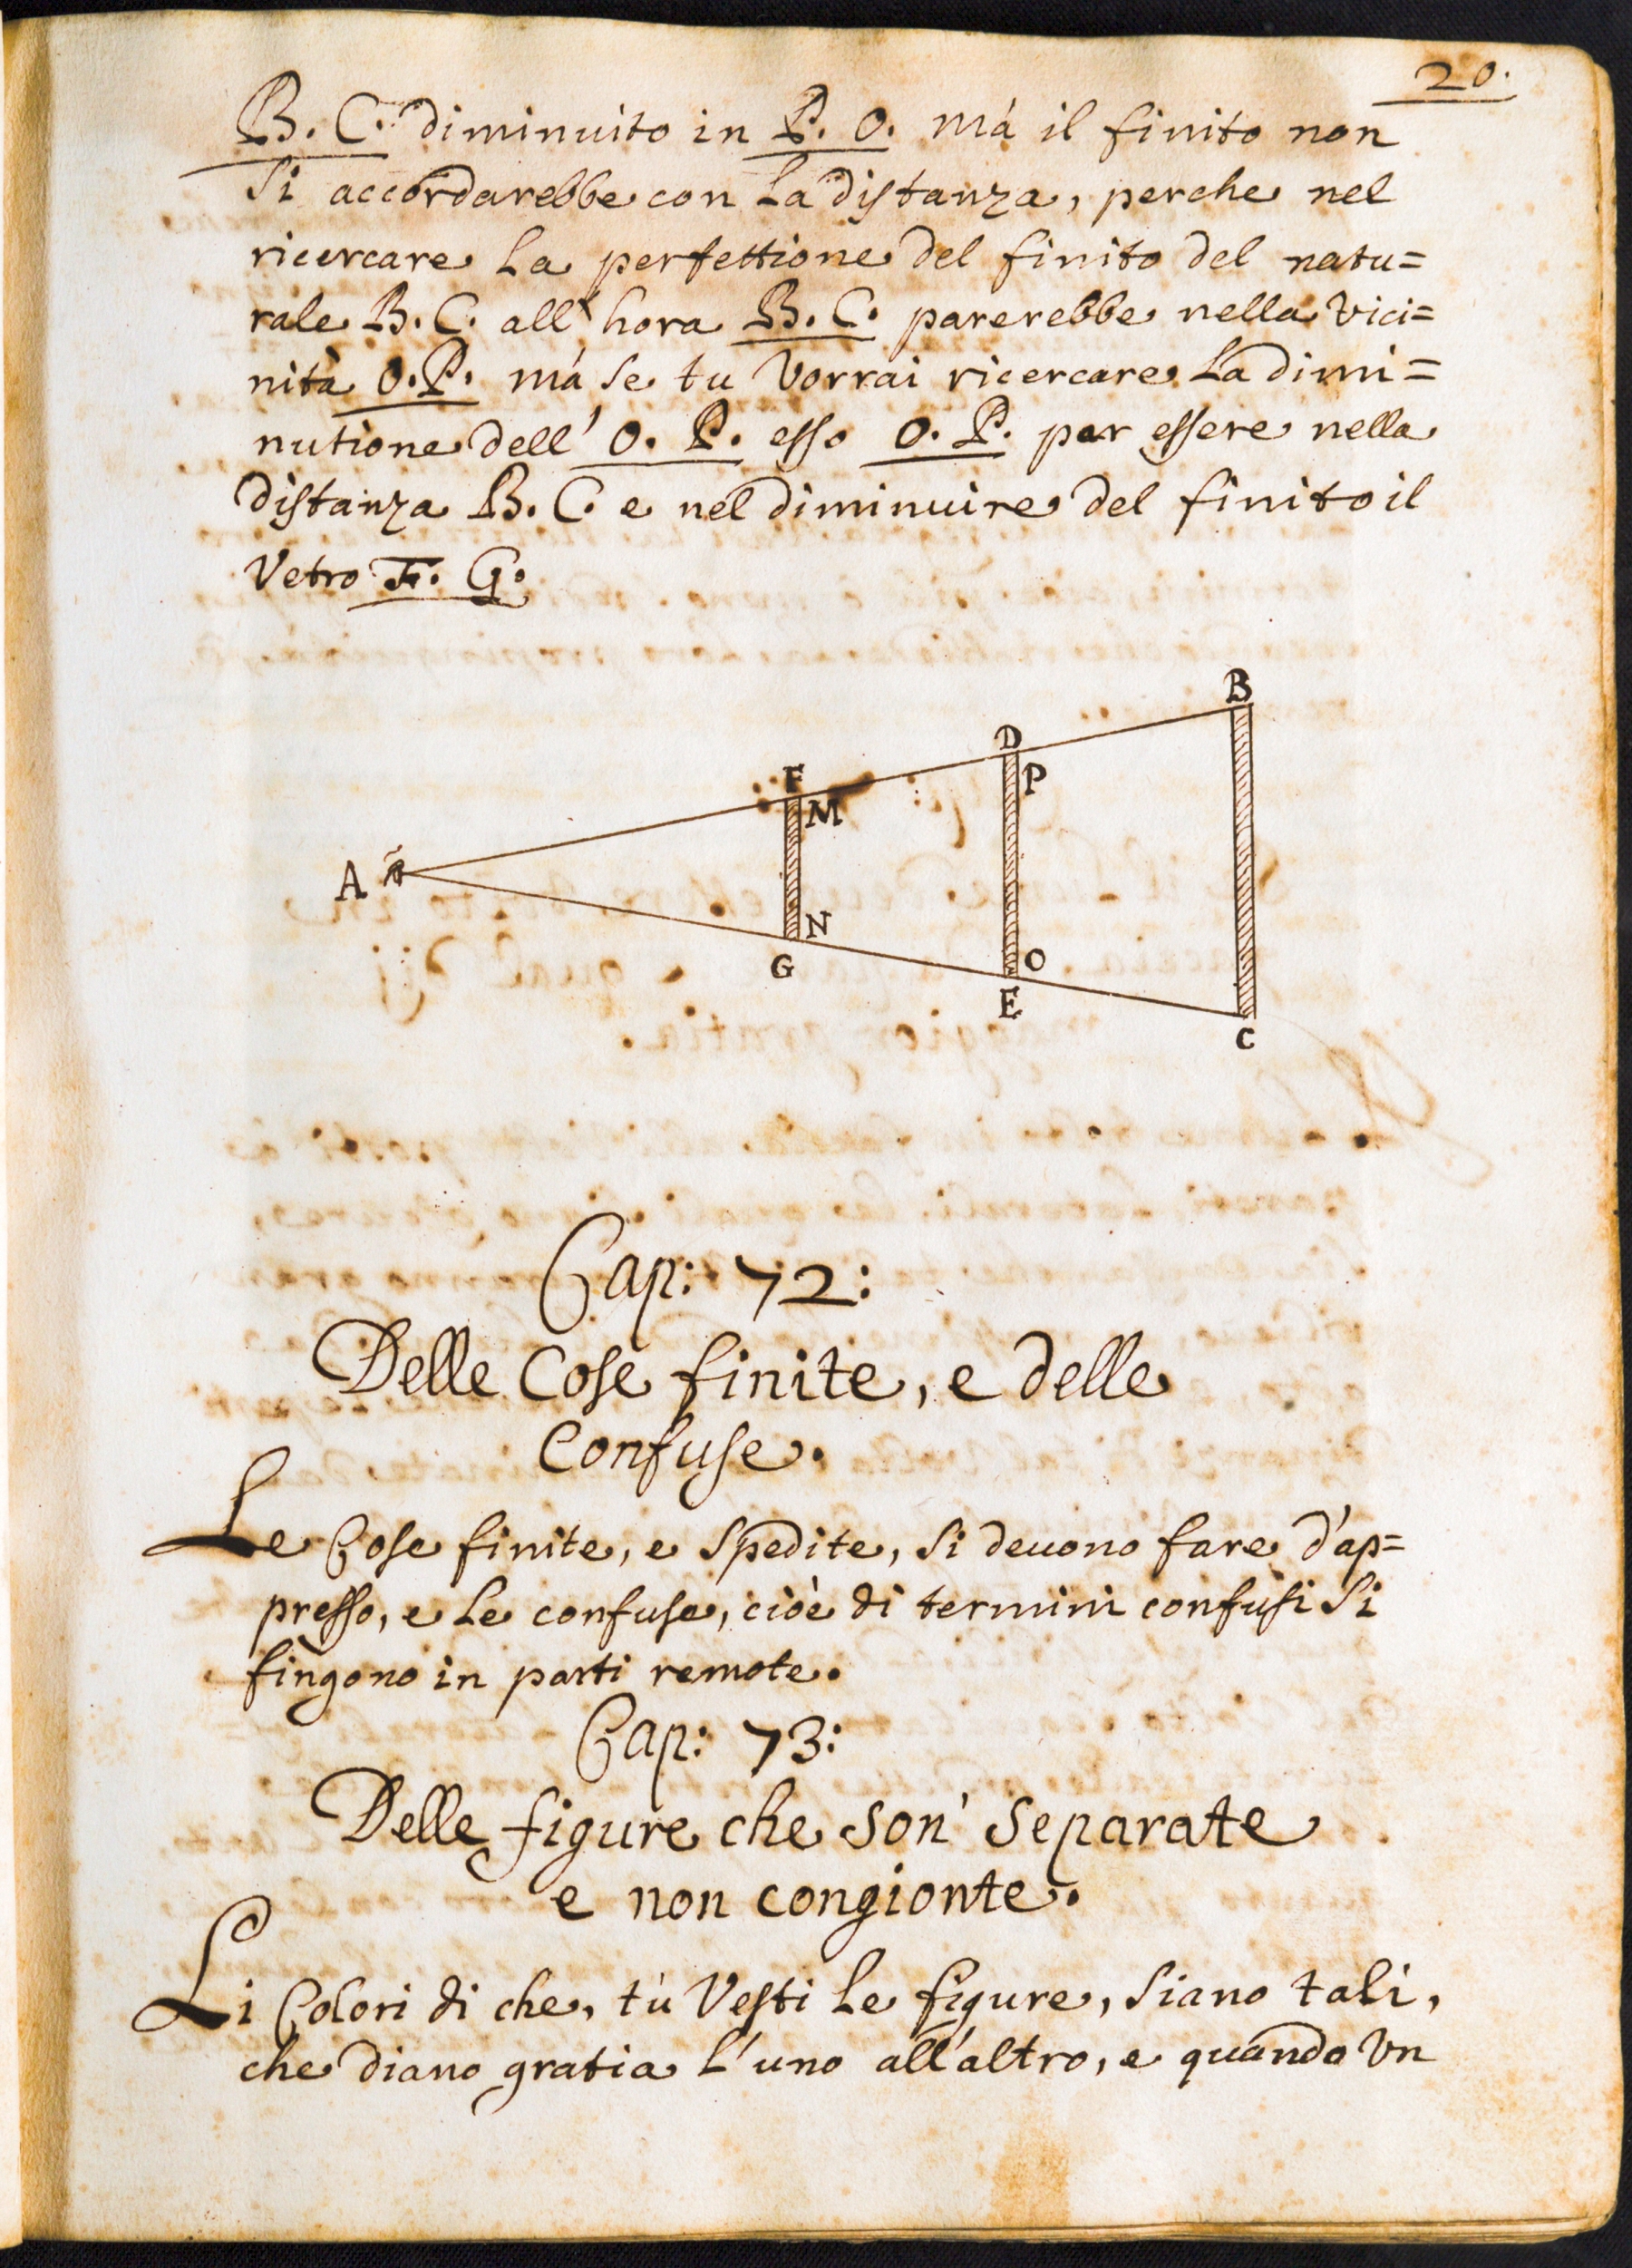 20.
B. C. diminuito in P. O. mà il finito non
si accordarebbe con la distanza, perche nel
ricercare la perfettione del finito del natu=
rale B. C. all'hora B. C. parerebbe nella vici=
nità O. P. mà se tu vorrai ricercare la dimi=
nutione dell' O. P. esso O. P. par essere nella
distanza B. C. e nel diminuire del finito il
Vetro F. G.
B
D
P
F
M
A
N
G
O
E
C
Cap: 72:
Delle Cose finite, e delle
Confuse.
Le Cose finite, e spedite, si deuono fare d'ap=
presso, e le confuse, cioè di termini confusi si
fingono in parti remote.
Cap: 73:
Delle figure che son' separate
e non congionte.
Li Colori di che, tù Vesti le figure, siano tali,
che diano gratia l'uno all'altro, e quando Vn